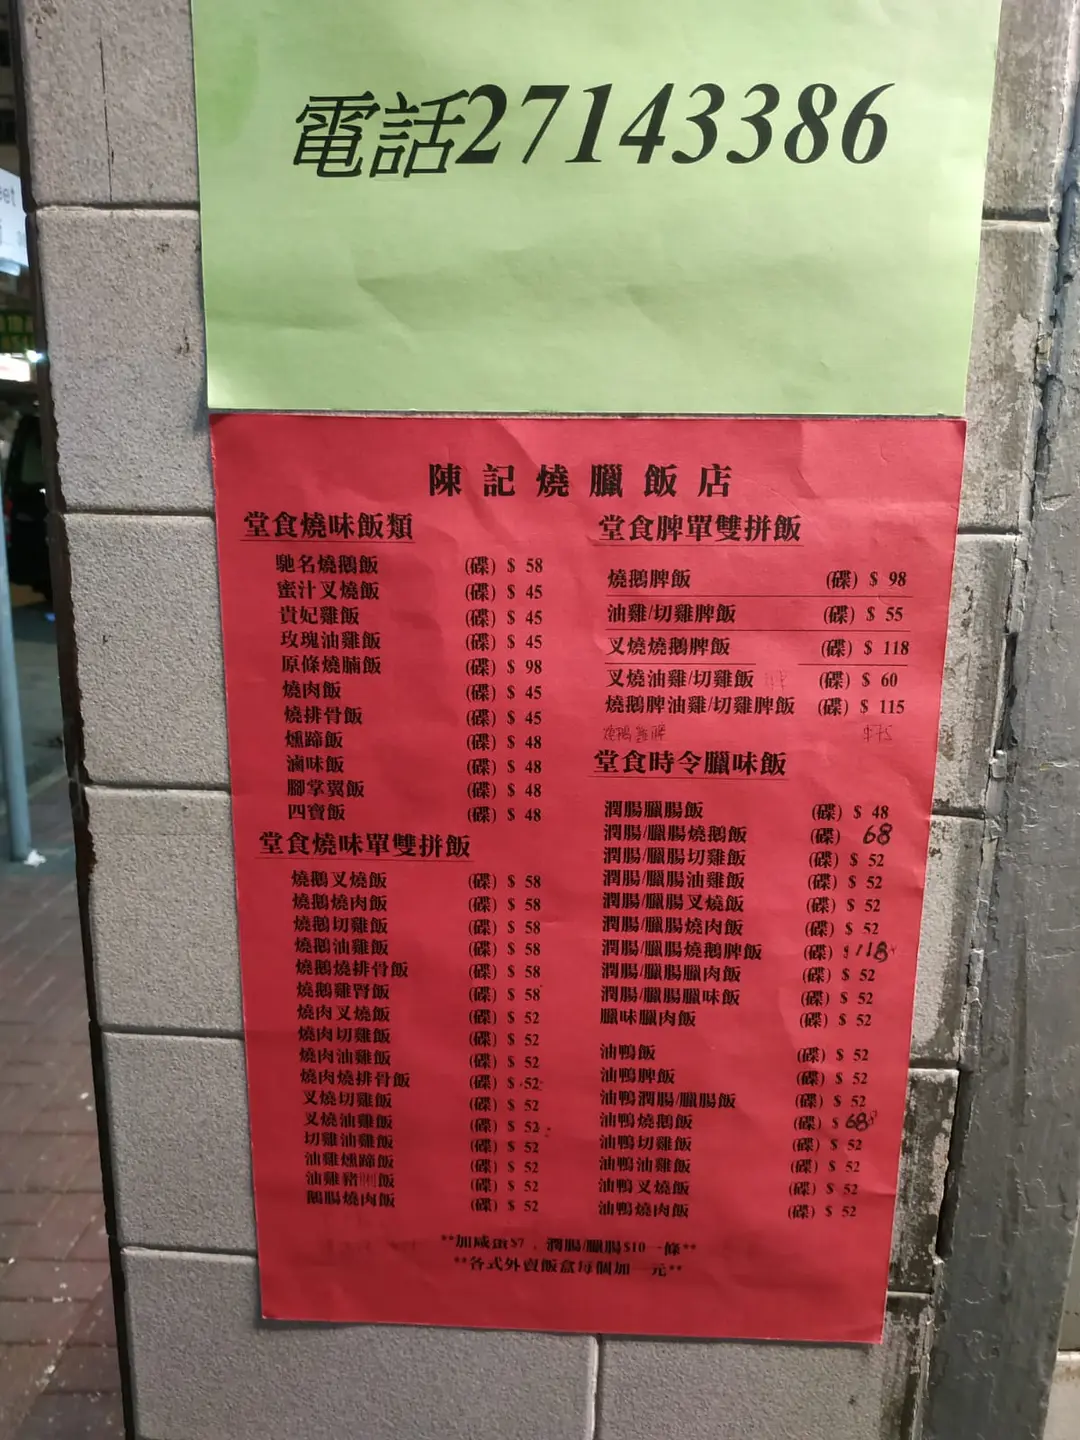 電話27143386
陳記燒臘飯店
堂食燒味飯類
馳名燒鵝飯 (碟) $ 58
蜜汁叉燒飯 (碟) $ 45
貴妃雞飯 (碟) $ 45
玫瑰油雞飯 (碟) $ 45
原條燒腩飯 (碟) $ 98
燒肉飯 (碟) $ 45
燒排骨飯 (碟) $ 45
燻蹄飯 (碟) $ 48
滷味飯 (碟) $ 48
腳掌翼飯 (碟) $ 48
四寶飯 (碟) $ 48
堂食燒味單雙拼飯
燒鵝叉燒飯 (碟) $ 58
燒鵝燒肉飯 (碟) $ 58
燒鵝切雞飯 (碟) $ 58
燒鵝油雞飯 (碟) $ 58
燒鵝燒排骨飯 (碟) $ 58
燒鵝雞腎飯 (碟) $ 58
燒肉叉燒飯 (碟) $ 52
燒肉切雞飯 (碟) $ 52
燒肉油雞飯 (碟) $ 52
燒肉燒排骨飯 (碟) $ 52
叉燒切雞飯 (碟) $ 52
叉燒油雞飯 (碟) $ 52
切雞油雞飯 (碟) $ 52
油雞燻蹄飯 (碟) $ 52
油雞豬飯 (碟) $ 52
鵝腸燒肉飯 (碟) $ 52
堂食脾單雙拼飯
燒鵝脾飯 (碟) $ 98
油雞/切雞脾飯 (碟) $ 55
叉燒燒鵝脾飯 (碟) $ 118
叉燒油雞/切雞飯 (碟) $ 60
燒鵝脾油雞/切雞脾飯 (碟) $ 115
$75
堂食時令臘味飯
潤腸臘腸飯 (碟) $ 48
潤腸/臘腸燒鵝飯 (碟) 68
潤腸/臘腸切雞飯 (碟) $ 52
潤腸/臘腸油雞飯 (碟) $ 52
潤腸/臘腸叉燒飯 (碟) $ 52
潤腸/臘腸燒肉飯 (碟) $ 52
潤腸/臘腸燒鵝脾飯 (碟) $ 118
潤腸/臘腸臘肉飯 (碟) $ 52
潤腸/臘腸臘味飯 (碟) $ 52
臘味臘肉飯 (碟) $ 52
油鴨飯 (碟) $ 52
油鴨脾飯 (碟) $ 52
油鴨潤腸/臘腸飯 (碟) $ 52
油鴨燒鵝飯 (碟) $ 68
油鴨切雞飯 (碟) $ 52
油鴨油雞飯 (碟) $ 52
油鴨叉燒飯 (碟) $ 52
油鴨燒肉飯 (碟) $ 52
**加咸蛋$7﹐潤腸/臘腸$10一條**
**各式外賣飯盒每個加一元**